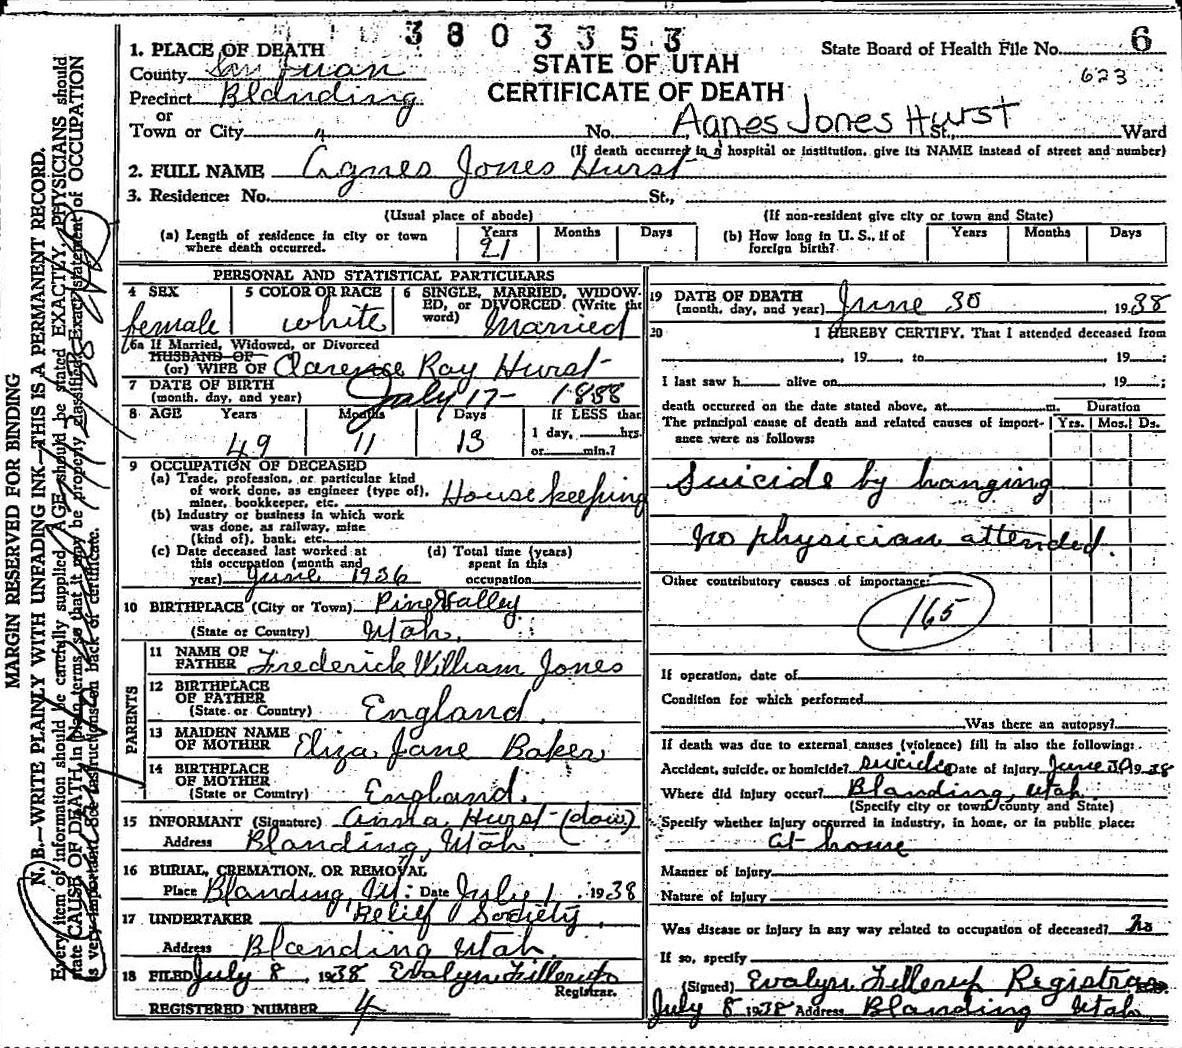 3803353
State Board of Health File No. 6
623
1. PLACE OF DEATH
STATE OF UTAH
County San Juan
CERTIFICATE OF DEATH
Precinct Blanding
or
Town or City " No. Agnes Jones Hurst St., Ward
(If death occurred in a hospital or institution, give its NAME instead of street and number)
2. FULL NAME Agnes Jones Hurst
3. Residence: No. St.,
(Usual place of abode) (If non-resident give city or town and State)
(a) Length of residence in city or town where death occurred. Years 21 Months Days
(b) How long in U. S., if of foreign birth? Years Months Days
PERSONAL AND STATISTICAL PARTICULARS
4 SEX female
5 COLOR OR RACE white
6 SINGLE, MARRIED, WIDOWED, or DIVORCED (Write the word) Married
6a If Married, Widowed, or Divorced
HUSBAND OF
(or) WIFE OF Clarence Ray Hurst
7 DATE OF BIRTH
(month, day, and year) July 17 - 1888
8 AGE Years 49 Months 11 Days 13 If LESS than 1 day, hrs. or min.?
9 OCCUPATION OF DECEASED
(a) Trade, profession, or particular kind
of work done, as engineer (type of),
miner, bookkeeper, etc. House keeping
(b) Industry or business in which work
was done, as railway, mine
(kind of), bank, etc.
(c) Date deceased last worked at
this occupation (month and
year) June 1936
(d) Total time (years)
spent in this
occupation
10 BIRTHPLACE (City or Town) Pine Valley
(State or Country) Utah.
PARENTS
11 NAME OF
FATHER Frederick William Jones
12 BIRTHPLACE
OF FATHER
(State or Country) England.
13 MAIDEN NAME
OF MOTHER Eliza Jane Baker
14 BIRTHPLACE
OF MOTHER
(State or Country) England.
15 INFORMANT (Signature) Anna Hurst (daw.)
Address Blanding, Utah.
16 BURIAL, CREMATION, OR REMOVAL
Place Blanding Ut: Date July 1, 1938
17 UNDERTAKER Relief Society
Address Blanding Utah.
18 FILED July 8 1938 Evalyn Fillerup
Registrar.
REGISTERED NUMBER 4
19 DATE OF DEATH
(month, day, and year) June 30 1938
20 I HEREBY CERTIFY, That I attended deceased from
, 19 , to , 19 ;
I last saw h alive on , 19 ;
death occurred on the date stated above, at m.
Duration
The principal cause of death and related causes of importance were as follows: Yrs. Mos. Ds.
Suicide by hanging
No physician attended.
Other contributory causes of importance:
165
If operation, date of
Condition for which performed
Was there an autopsy?
If death was due to external causes (violence) fill in also the following:
Accident, suicide, or homicide? Suicide Date of injury June 30 1938
Where did injury occur? Blanding, Utah
(Specify city or town, county and State)
Specify whether injury occurred in industry, in home, or in public place:
At home
Manner of injury
Nature of injury
Was disease or injury in any way related to occupation of deceased? No
If so, specify
(Signed) Evalyn Fillerup Registrar
July 8 1938 Address Blanding Utah
MARGIN RESERVED FOR BINDING
N. B.—WRITE PLAINLY WITH UNFADING INK—THIS IS A PERMANENT RECORD.
Every item of information should be carefully supplied. AGE should be stated EXACTLY. PHYSICIANS should
state CAUSE OF DEATH in plain terms, so that it may be properly classified. Exact statement of OCCUPATION
is very important. See instructions on back of certificate.